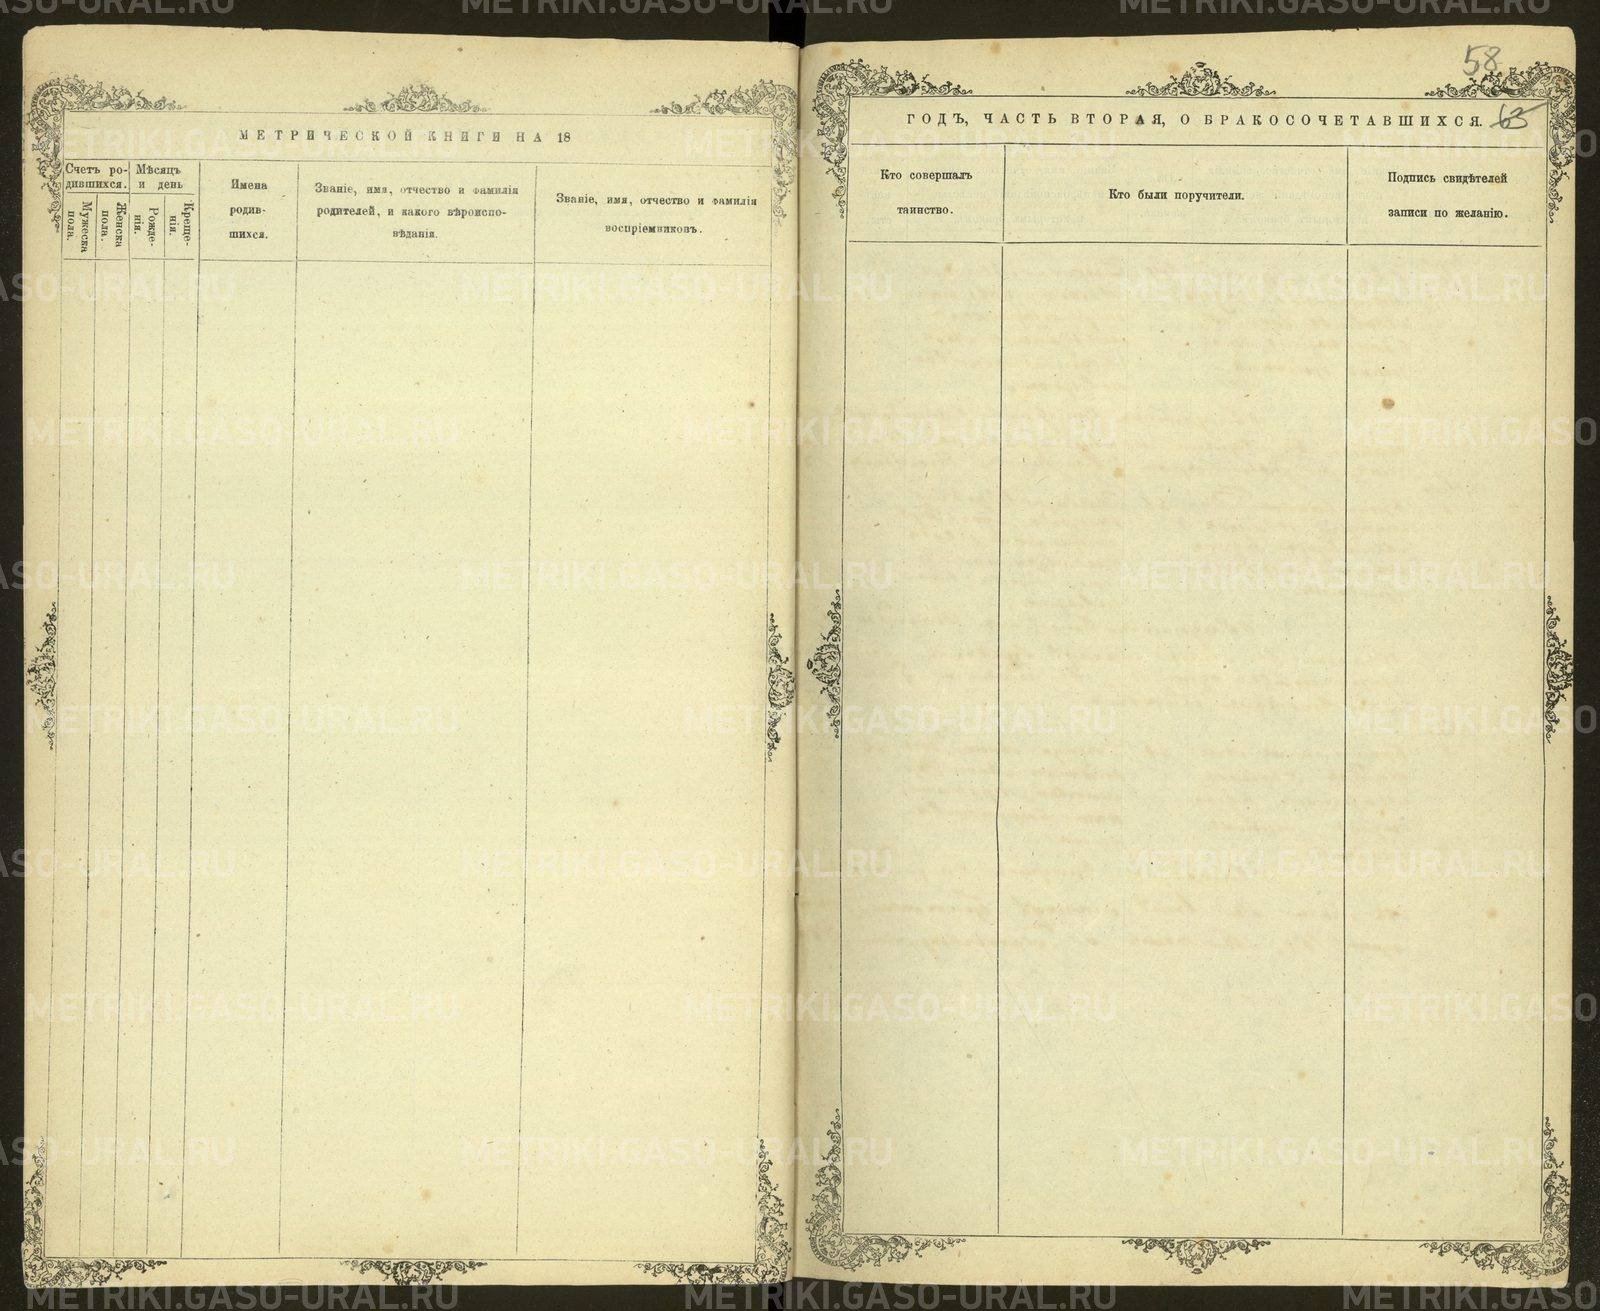 МЕТРИЧЕСКОЙ КНИГИ НА 18
Счетъ ро-
дившихся.
Мѣсяцъ
и день
Мужеска
пола.
Женска
пола.
Рожде-
нія.
Креще-
нія.
Имена
родив-
шихся.
Званіе, имя, отчество и фамилія
родителей, и какого вѣроиспо-
вѣданія.
Званіе, имя, отчество и фамилія
воспріемниковъ.
58
ГОДЪ, ЧАСТЬ ВТОРАЯ, О БРАКОСОЧЕТАВШИХСЯ. 63
Кто совершалъ
таинство.
Кто были поручители.
Подпись свидѣтелей
записи по желанію.
METRIKI.GASO-URAL.RU